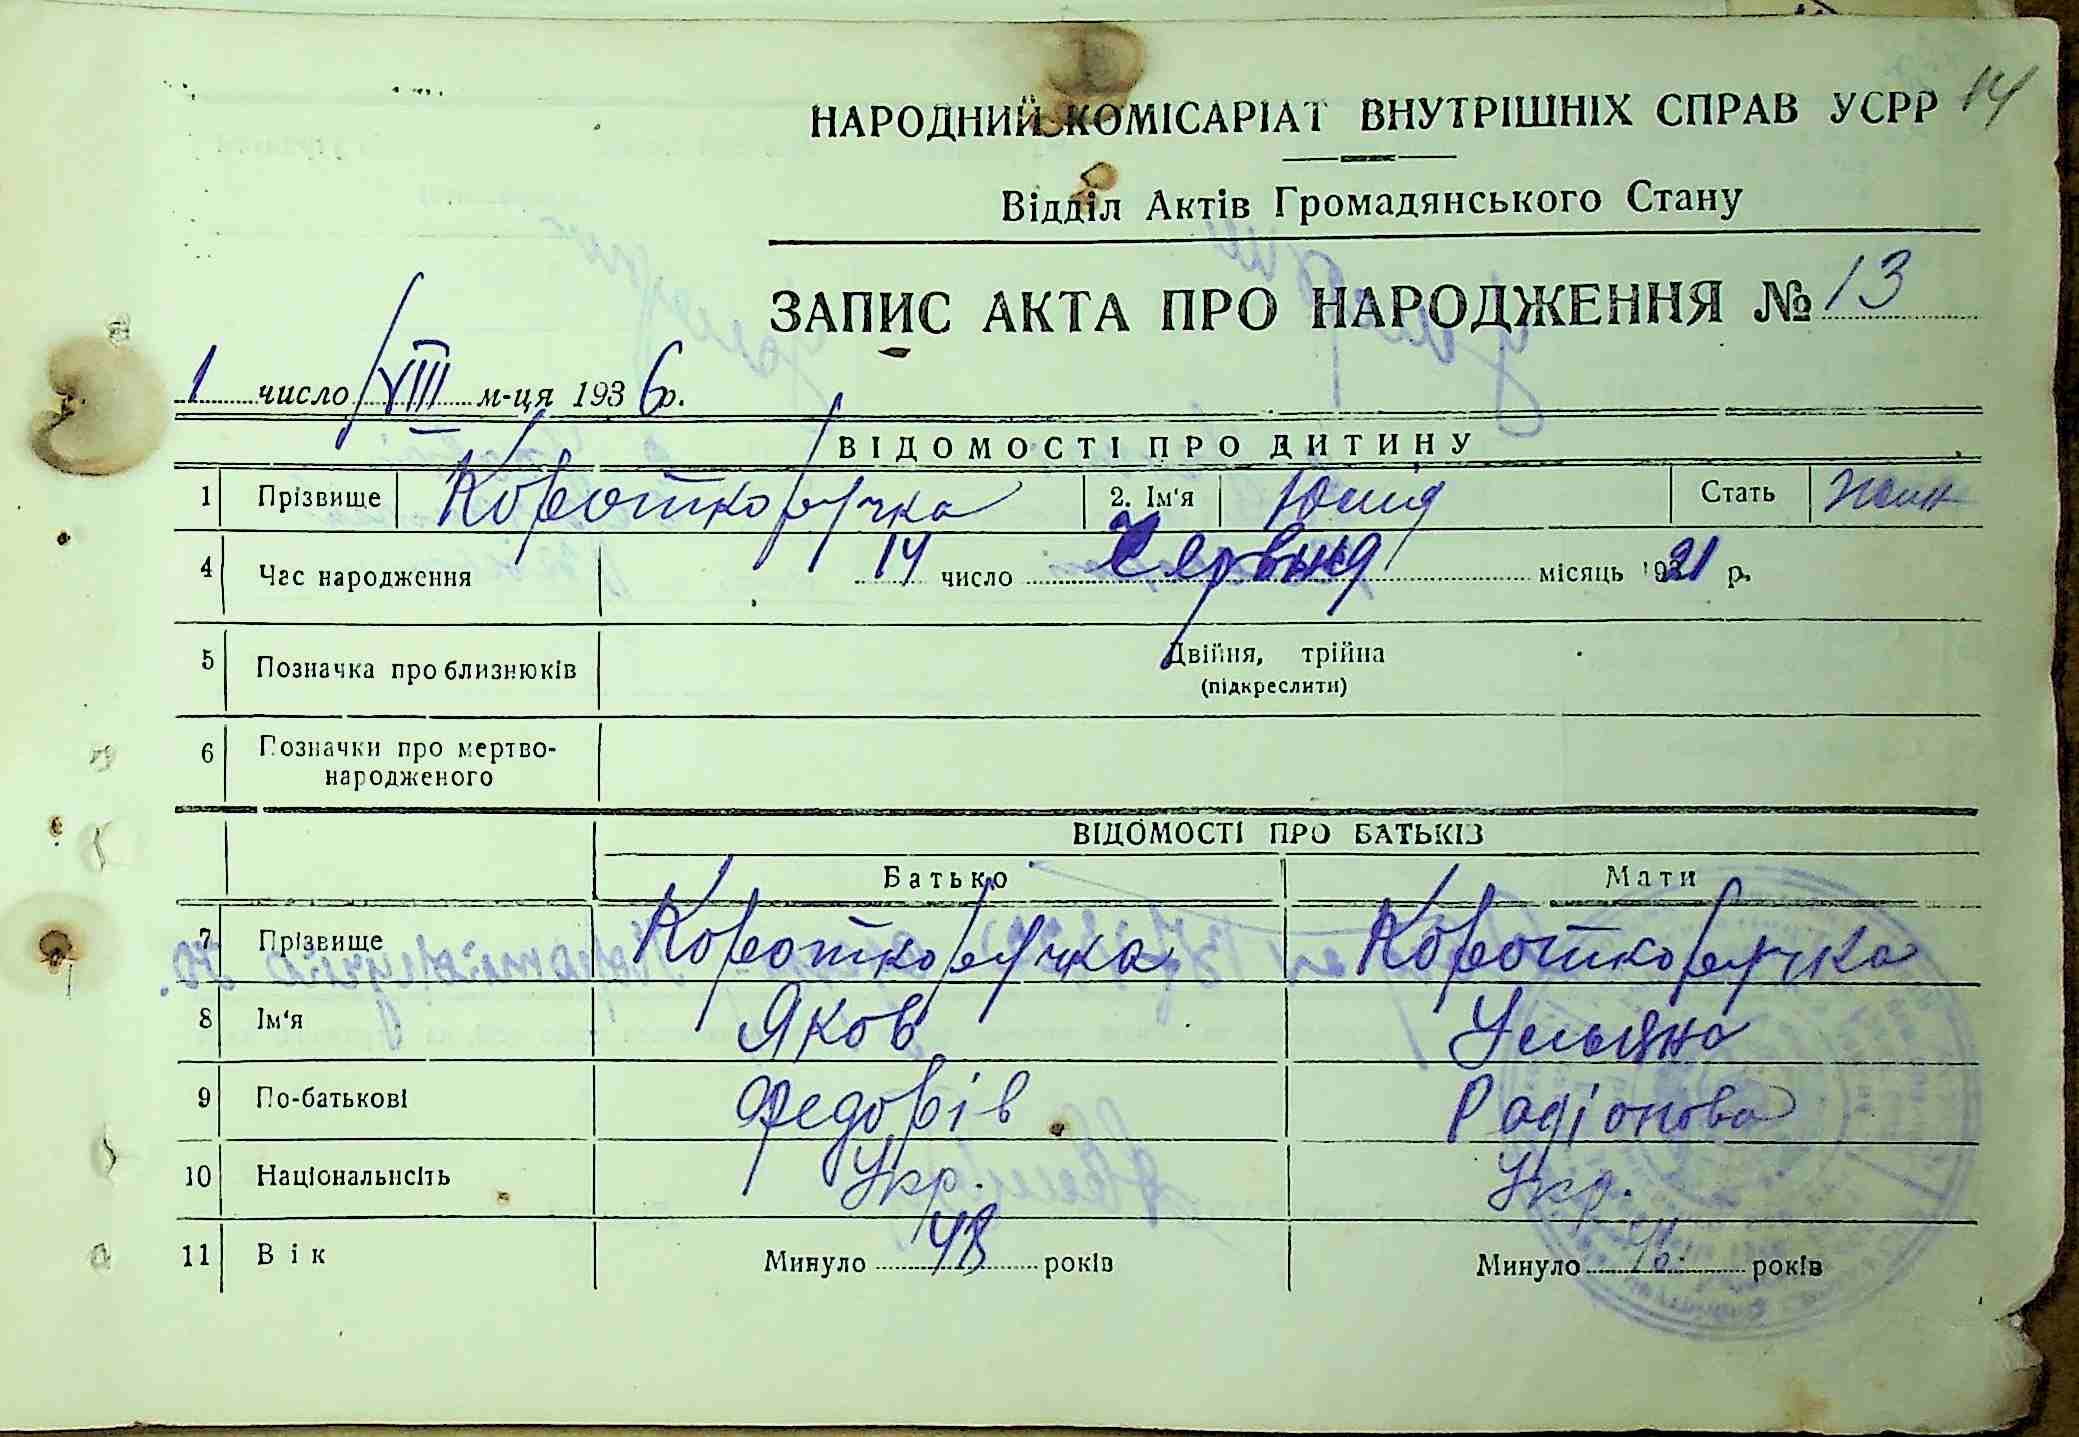 14
НАРОДНИЙ КОМІСАРІАТ ВНУТРІШНІХ СПРАВ УСРР
Відділ Актів Громадянського Стану
ЗАПИС АКТА ПРО НАРОДЖЕННЯ № 13
1 число VIII м-ця 1936 р.
ВІДОМОСТІ ПРО ДИТИНУ
1 Прізвище Короткоручка 2. Ім'я Стать Жін
4 Час народження 14 число Червня місяць 1921 р.
5 Позначка про близнюків Двійня, трійна
(підкреслити)
6 Позначки про мертво-
народженого
ВІДОМОСТІ ПРО БАТЬКІВ
Батько Мати
7 Прізвище Короткоручка Короткоручка
8 Ім'я Яков Ульяна
9 По-батькові Федорів Радіонова
10 Національність Укр. Укр.
11 Вік Минуло 43 років Минуло років